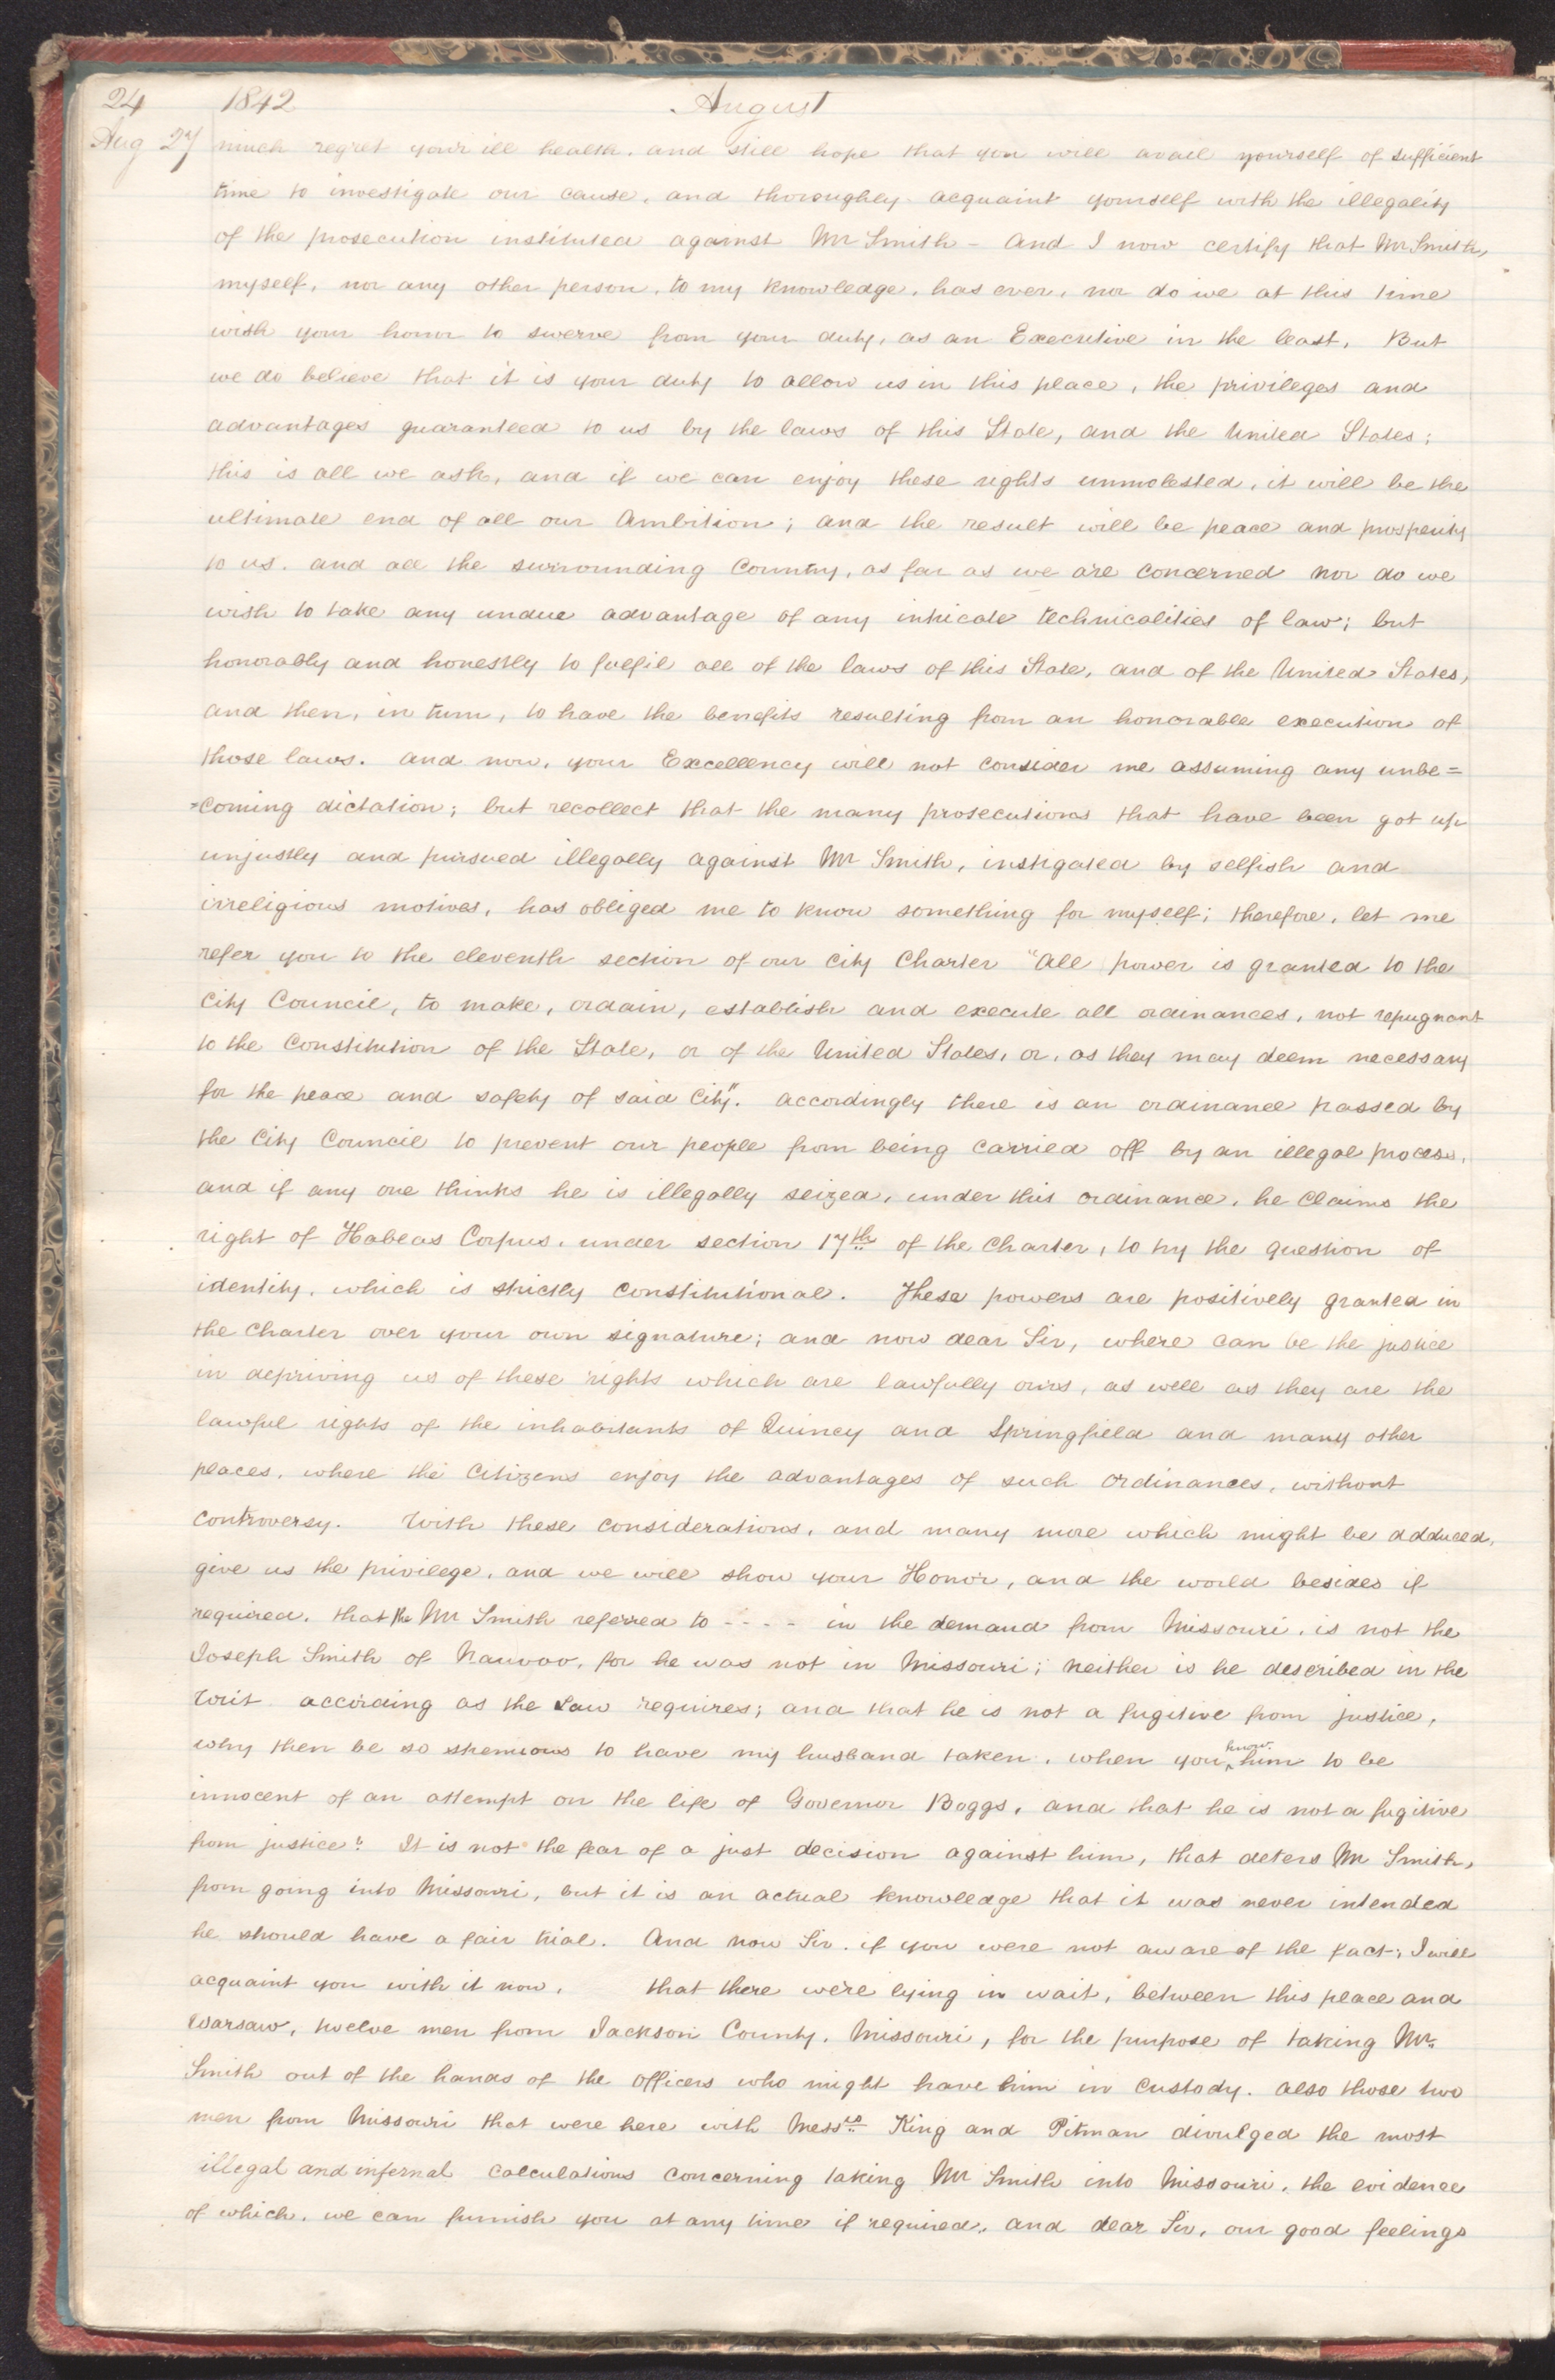 24 1842 August
Aug 27 much regret your ill health, and still hope that you will avail yourself of sufficient
time to investigate our cause, and thoroughly acquaint yourself with the illegality
of the prosecution instituted against Mr Smith – And I now certify that Mr Smith,
myself, nor any other person, to my knowledge, has ever, nor do we at this time
wish your honor to swerve from your duty, as an Executive in the least, But
we do believe that it is your duty to allow us in this place, the privileges and
advantages guaranteed to us by the laws of this State, and the United States;
this is all we ask, and if we can enjoy these rights unmolested, it will be the
ultimate end of all our Ambition; and the result will be peace and prosperity
to us. and all the surrounding Country, as far as we are concerned nor do we
wish to take any undue advantage of any intricate technicalities of law; but
honorably and honestly to fulfil all of the laws of this State, and of the United States,
and then, in turn, to have the benefits resulting from an honorable execution of
those laws. and now, your Excellency will not consider me assuming any unbe=
=coming dictation; but recollect that the many prosecutions that have been got up
unjustly and pursued illegally against Mr Smith, instigated by selfish and
irreligious motives, has obliged me to know something for myself; therefore, let me
refer you to the eleventh section of our city Charter "All power is granted to the
City Council, to make, ordain, establish and execute all ordinances, not repugnant
to the Constitution of the State, or of the United States, or, as they may deem necessary
for the peace and safety of said City". accordingly there is an ordinance passed by
the City Council to prevent our people from being carried off by an illegal process,
and if any one thinks he is illegally seized, under this ordinance, he claims the
right of Habeas Corpus, under section 17th of the charter, to try the question of
identity, which is strictly constitutional. These powers are positively granted in
the charter over your own signature; and now dear Sir, where can be the justice
in depriving us of these rights which are lawfully ours, as well as they are the
lawful rights of the inhabitants of Quincy and Springfield and many other
places, where the citizens enjoy the advantages of such ordinances, without
controversy. With these considerations, and many more which might be adduced,
give us the privilege, and we will show your Honor, and the world besides if
required, that the Mr Smith referred to - - - - in the demand from Missouri, is not the
Joseph Smith of Nauvoo, for he was not in Missouri; neither is he described in the
writ according as the Law requires; and that he is not a fugitive from justice,
why then be so strenuous to have my husband taken, when you know him to be
innocent of an attempt on the life of Governor Boggs, and that he is not a fugitive
from justice" It is not the fear of a just decision against him, that deters Mr Smith,
from going into Missouri, but it is an actual knowledge that it was never intended
he should have a fair trial. And now Sir, if you were not aware of the fact; I will
acquaint you with it now, that there were lying in wait, between this place and
Warsaw, twelve men from Jackson County, Missouri, for the purpose of taking Mr.
Smith out of the hands of the officers who might have him in custody. also those two
men from Missouri that were here with Messrs King and Pitman divulged the most
illegal and infernal calculations concerning taking Mr Smith into Missouri, the evidence
of which, we can furnish you at any time if required, and dear Sir, our good feelings